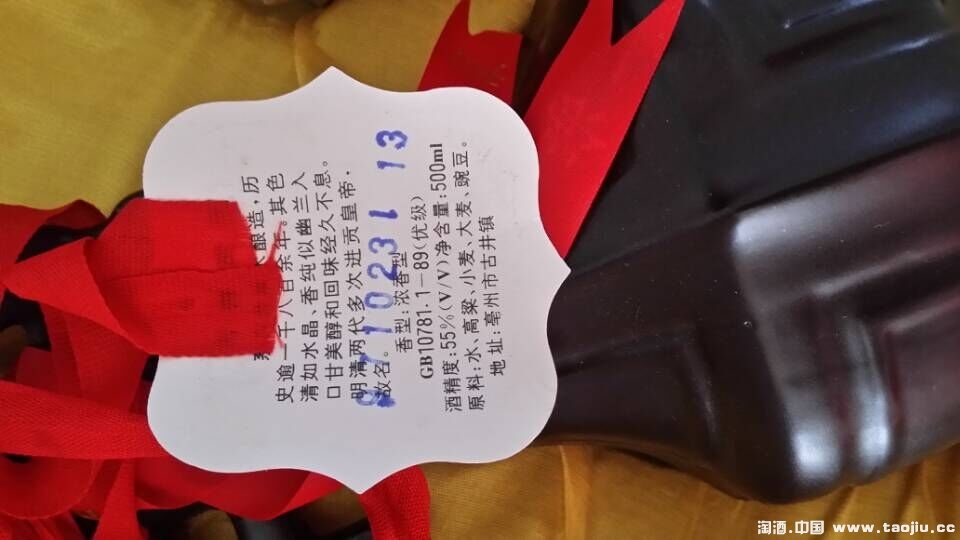 酿造，历
史逾一千八百余年。其色
清如水晶、香纯似幽兰、入
口甘美醇和回味经久不息。
明清两代多次进贡皇帝，
故名。
971023113
香型：浓香型
GB10781.1－89（优级）
酒精度：55％（V/V）净含量：500ml
原料：水、高粱、小麦、大麦、豌豆。
地址：亳州市古井镇
淘酒.中国 www.taojiu.cc